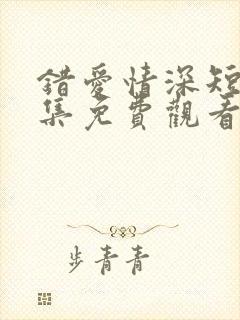 錯愛情深短
集免費觀看
步青青